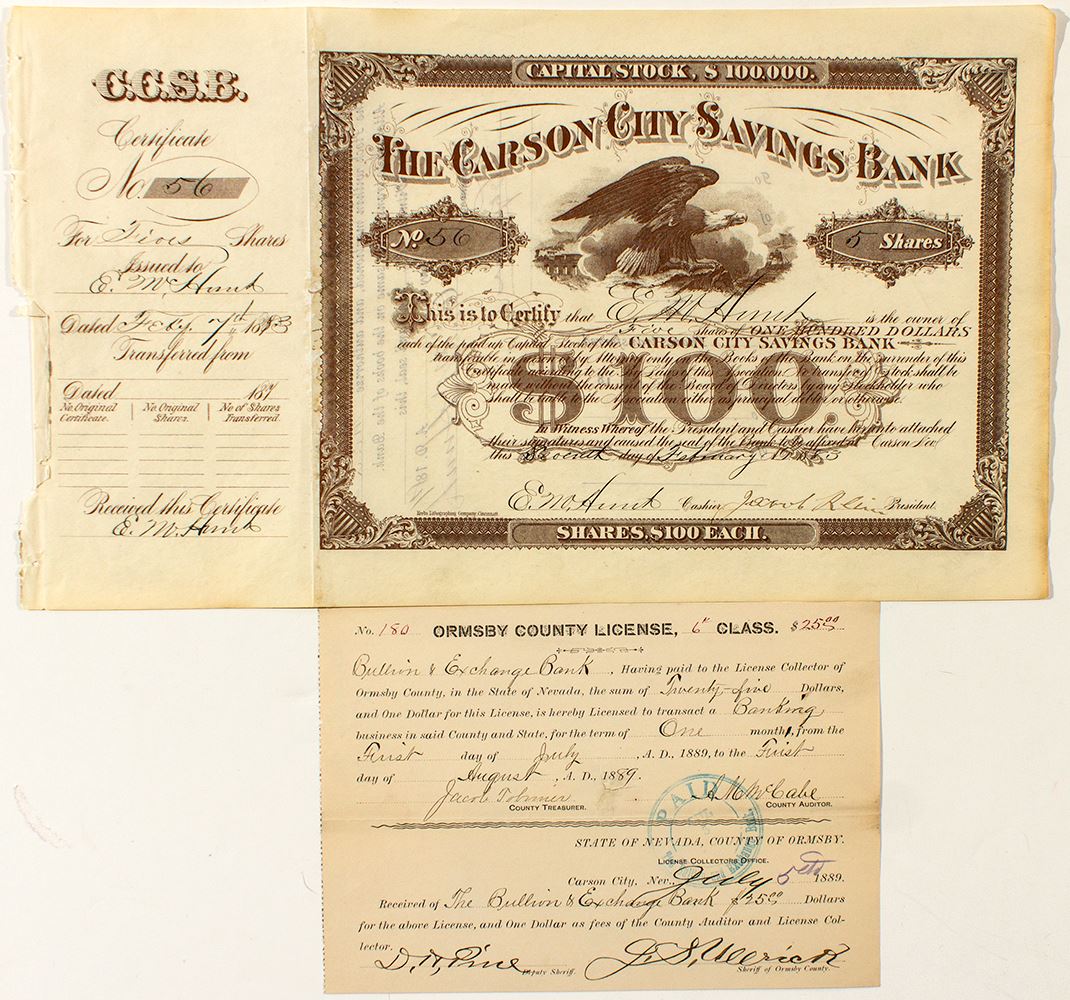 C.C.S.B.
Certificate
No. 56
For Five Shares
Issued to
E. M. Hunt
Dated Feby 7th 1883
Transferred from
Dated 187
No. Original Certificate. No. Original Shares. No of Shares Transferred.
Received this Certificate
E. M. Hunt
CAPITAL STOCK, $ 100,000.
THE CARSON CITY SAVINGS BANK
No. 56
5 Shares
This is to Certify that E. M. Hunt is the owner of
Five shares of ONE HUNDRED DOLLARS
each of the paid up Capital Stock of the CARSON CITY SAVINGS BANK
transferable in person or by Attorney only on the Books of the Bank on the surrender of this
Certificate according to the By Laws of the Association No transfer of Stock shall be
made without the consent of the Board of Directors by any Stockholder who
shall be liable to the Association either as principal debtor or otherwise.
$100.
In Witness Whereof the President and Cashier have hereunto attached
their signatures and caused the seal of the Bank to be affixed at Carson Nev.
this Seventh day of February 1883
E. M. Hunt Cashier Jacob Klein President.
Krebs Lithographing Company, Cincinnati.
SHARES, $100 EACH.
No. 180 ORMSBY COUNTY LICENSE, 6th CLASS. $25.00
Bullion & Exchange Bank, Having paid to the License Collector of
Ormsby County, in the State of Nevada, the sum of Twenty-five Dollars,
and One Dollar for this License, is hereby Licensed to transact a Banking
business in said County and State, for the term of One month, from the
First day of July, A. D., 1889, to the First
day of August, A. D., 1889.
Jacob Tobriner
COUNTY TREASURER.
McCabe
COUNTY AUDITOR.
PAID
STATE OF NEVADA, COUNTY OF ORMSBY.
LICENSE COLLECTORS OFFICE.
Carson City, Nev., July 5th 1889.
Received of The Bullion & Exchange Bank $25.00 Dollars
for the above License, and One Dollar as fees of the County Auditor and License Col-
lector.
Deputy Sheriff.
Sheriff of Ormsby County.